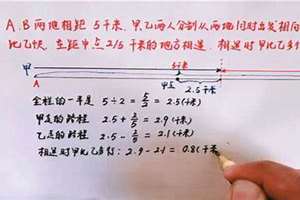 A、B两地相距 5千米，甲、乙两人分别从两地同时出发相向
比乙快，在距中点2/5千米的地方相遇，相遇时甲比乙多
甲 5千米
A 中点 2.5千米
全程的一半是 5÷2 = 5/2 = 2.5(千米)
甲走的路程 2.5 + 2/5 = 2.9(千米)
乙走的路程 2.5 - 2/5 = 2.1(千米)
相遇时甲比乙多行: 2.9-2.1 = 0.8(千米